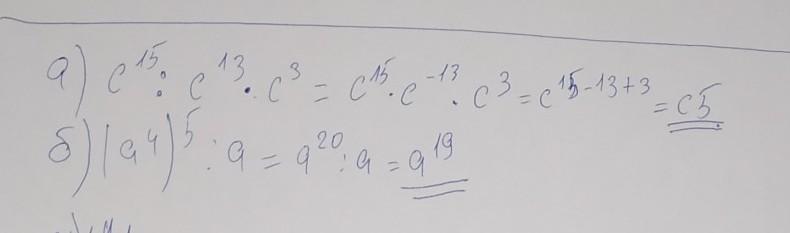 а) c¹⁵ : c¹³ · c³ = c¹⁵ · c⁻¹³ · c³ = c¹⁵⁻¹³⁺³ = c5
б) (a⁴)⁵ : a = a²⁰ : a = a¹⁹